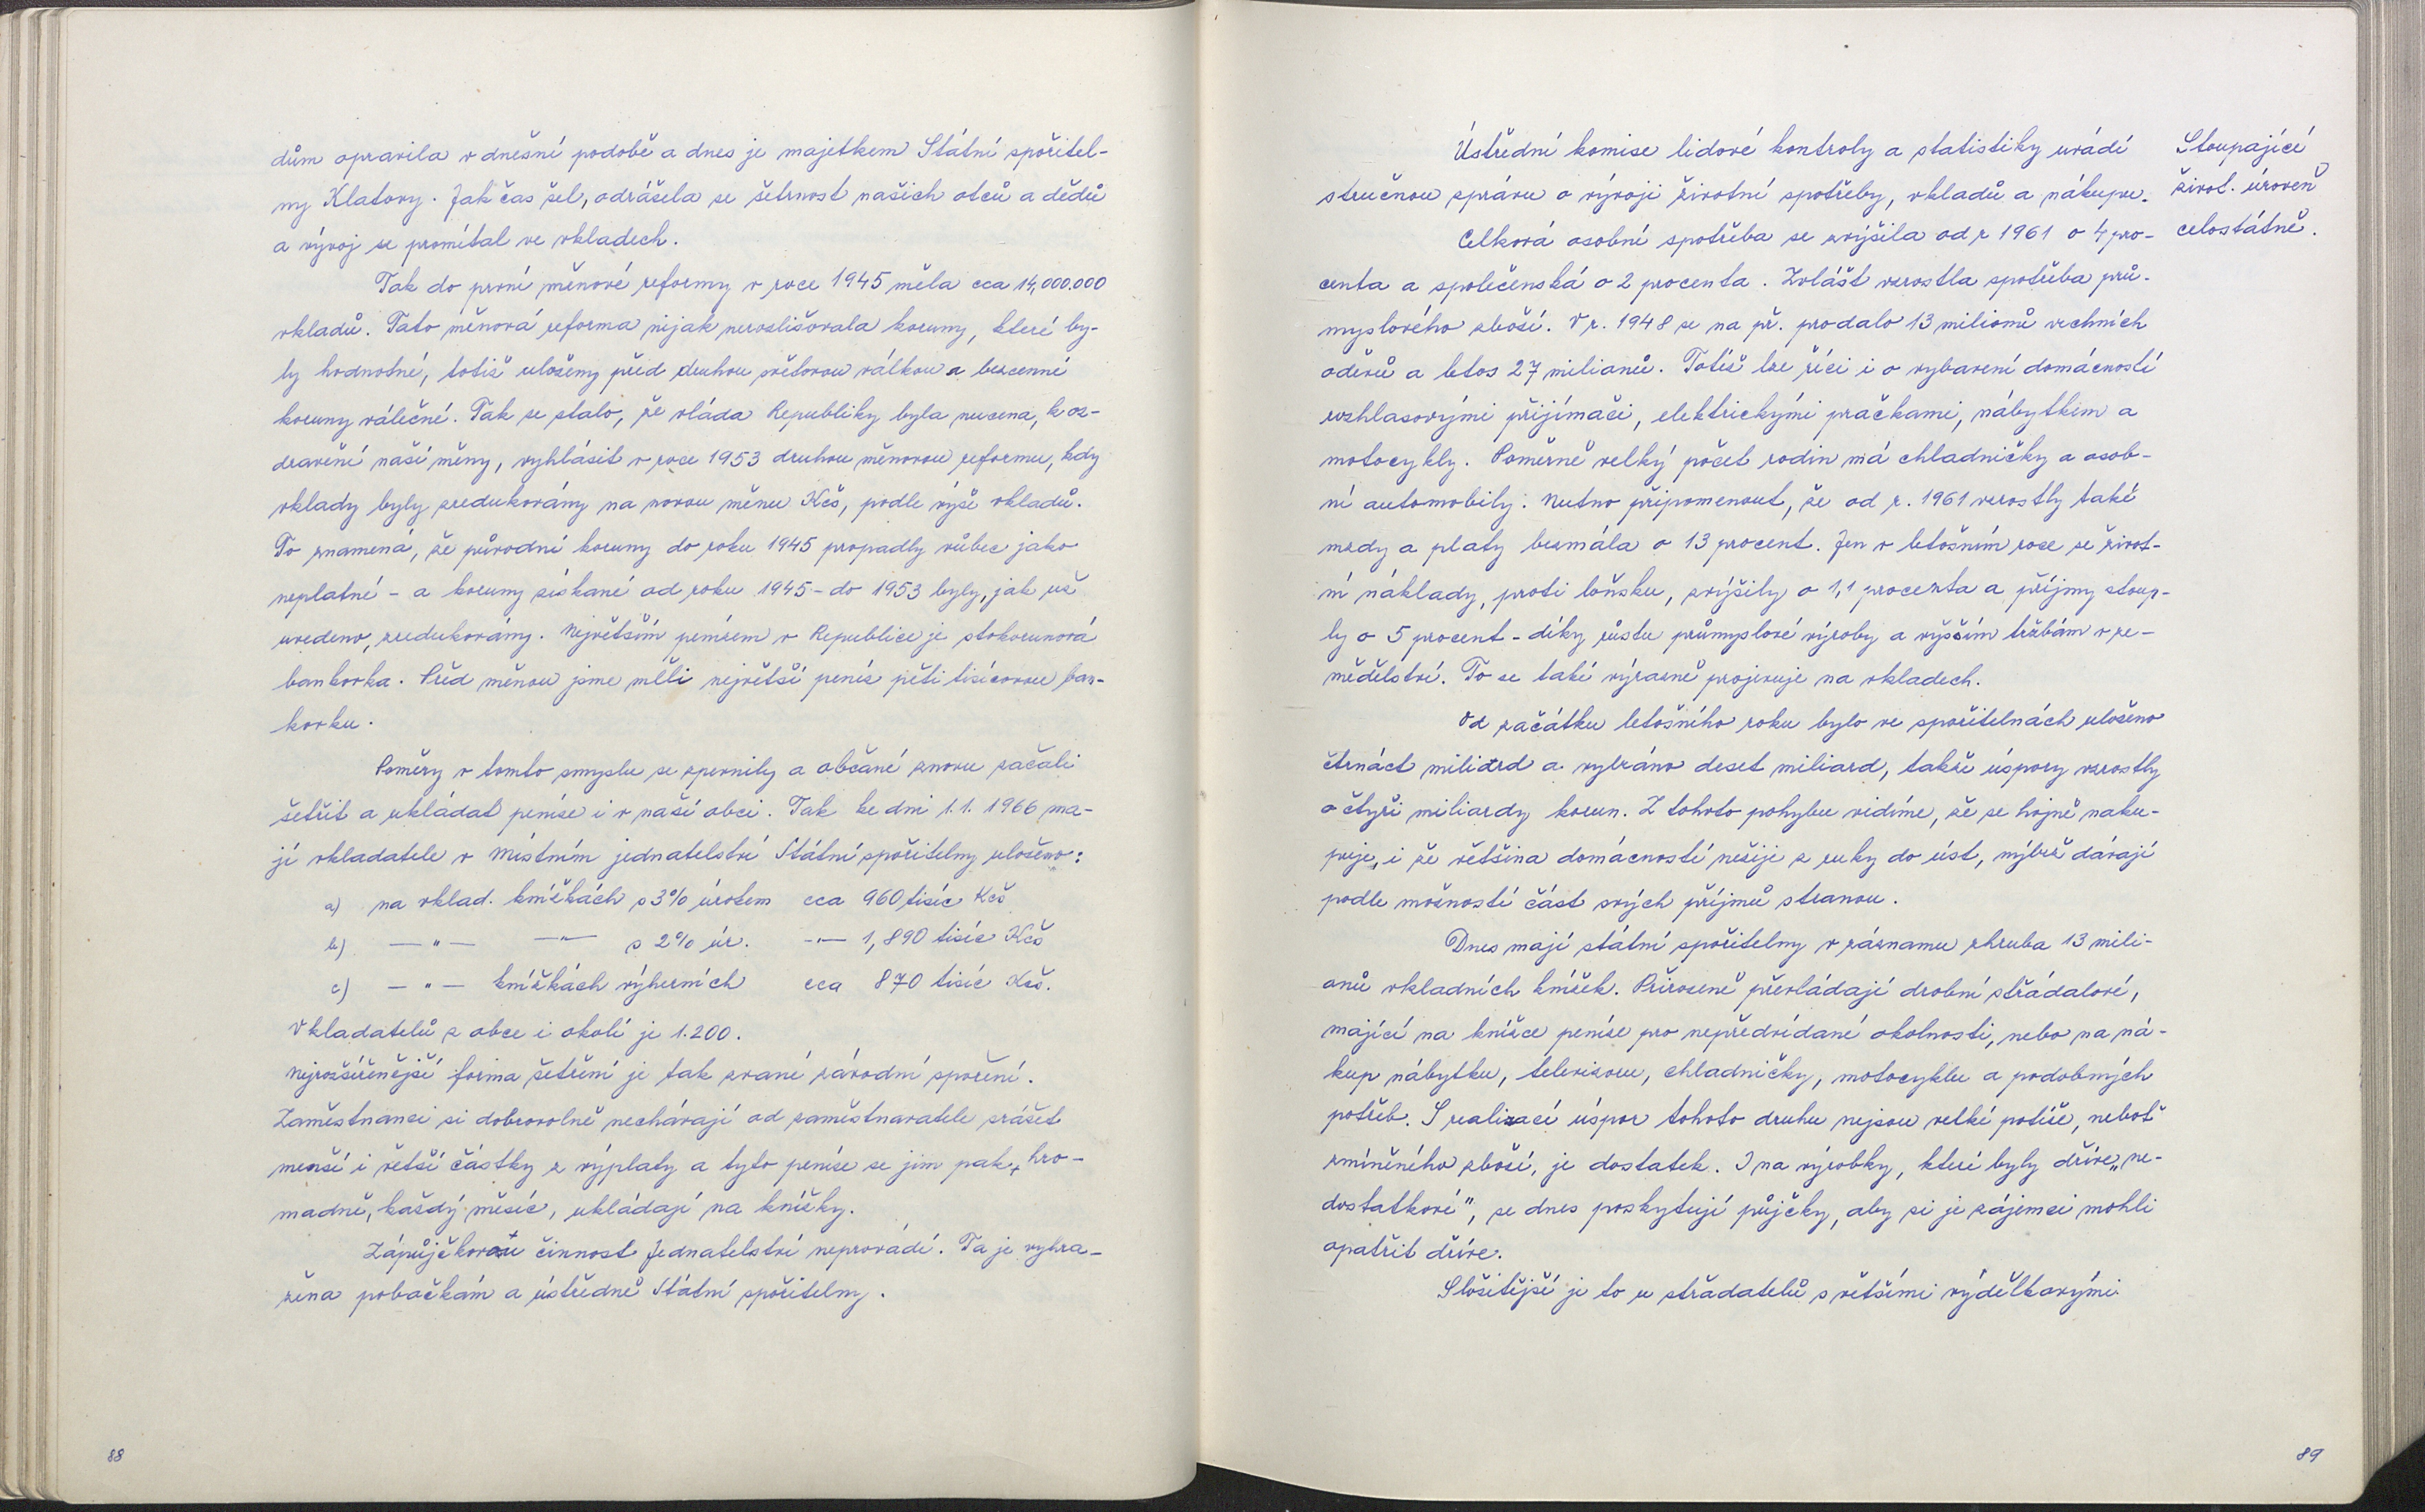 dům opravila v dnešní podobě a dnes je majetkem Státní spořitel-
ny Klatovy. Jak čas šel, odrážela se šetrnost našich otců a dědů
a vývoj se promítal ve vkladech.
Tak do první měnové reformy v roce 1945 měla cca 14,000.000
vkladů. Tato měnová reforma nijak nerozlišovala koruny, které by-
ly hodnotné, totiž uloženy před druhou světovou válkou a bezcenné
koruny válečné. Tak se stalo, že vláda Republiky byla nucena, k oz-
dravění naší měny, vyhlásit v roce 1953 druhou měnovou reformu, kdy
vklady byly zredukovány na novou měnu Kčs, podle výše vkladů.
To znamená, že původní koruny do roku 1945 propadly vůbec jako
neplatné - a koruny získané od roku 1945 - do 1953 byly, jak už
uvedeno, zredukovány. Největším penízem v Republice je stokorunová
bankovka. Před měnou jsme měli největší peníz pěti tisícovou ban-
kovku.
Poměry v tomto smyslu se zpevnily a občané znovu začali
šetřit a ukládat peníze i v naší obci. Tak ke dni 1.1. 1966 ma-
jí vkladatelé v místním jednatelství Státní spořitelny uloženo:
a) na vklad. knížkách s 3% úrokem cca 960 tisíc Kčs
b) —"— —"— s 2% úr. —"— 1,890 tisíc Kčs
c) —"— knížkách výherních cca 870 tisíc Kčs.
Vkladatelů z obce i okolí je 1.200.
Nejrozšířenější forma šetření je tak zvané závodní spoření.
Zaměstnanci si dobrovolně nechávají od zaměstnavatele srážet
menší i větší částky z výplaty a tyto peníze se jim pak, hro-
madně, každý měsíc, ukládají na knížky.
Zápůjčkovou činnost Jednatelství neprovádí. Ta je vyhra-
žena pobočkám a ústředně Státní spořitelny.
88
Ústřední komise lidové kontroly a statistiky uvádí
stručnou zprávu o vývoji životní spotřeby, vkladů a nákupu.
Stoupající
život. úroveň
celostátně.
Celková osobní spotřeba se zvýšila od r 1961 o 4 pro-
centa a společenská o 2 procenta. Zvlášt vzrostla spotřeba prů-
myslového zboží. V r. 1948 se na př. prodalo 13 milionů vrchních
oděvů a letos 27 milionů. Totéž lze říci i o vybavení domácností
rozhlasovými přijímači, elektrickými pračkami, nábytkem a
motocykly. Poměrně velký počet rodin má chladničky a osob-
ní automobily. Nutno připomenout, že od r. 1961 vzrostly také
mzdy a platy bezmála o 13 procent. Jen v letošním roce se život-
ní náklady, proti loňsku, zvýšily o 1,1 procenta a příjmy stoup-
ly o 5 procent - díky růstu průmyslové výroby a vyšším tržbám v ze-
mědělství. To se také výrazně projevuje na vkladech.
Od začátku letošního roku bylo ve spořitelnách uloženo
čtrnáct miliard a vybráno deset miliard, takže úspory vzrostly
o čtyři miliardy korun. Z tohoto pohybu vidíme, že se hojně naku-
puje, i že většina domácností nežije z ruky do úst, nýbrž dávají
podle možností část svých příjmů stranou.
Dnes mají státní spořitelny v záznamu zhruba 13 mili-
onů vkladních knížek. Přirozeně převládají drobní střádalové,
mající na knížce peníze pro nepředvídané okolnosti, nebo na ná-
kup nábytku, televizoru, chladničky, motocyklu a podobných
potřeb. S realizací úspor tohoto druhu nejsou velké potíže, neboť
zmíněného zboží, je dostatek. I na výrobky, které byly dříve „ne-
dostatkové", se dnes poskytují půjčky, aby si je zájemci mohli
opatřit dříve.
Složitější je to u střadatelů s většími výdělkovými
89